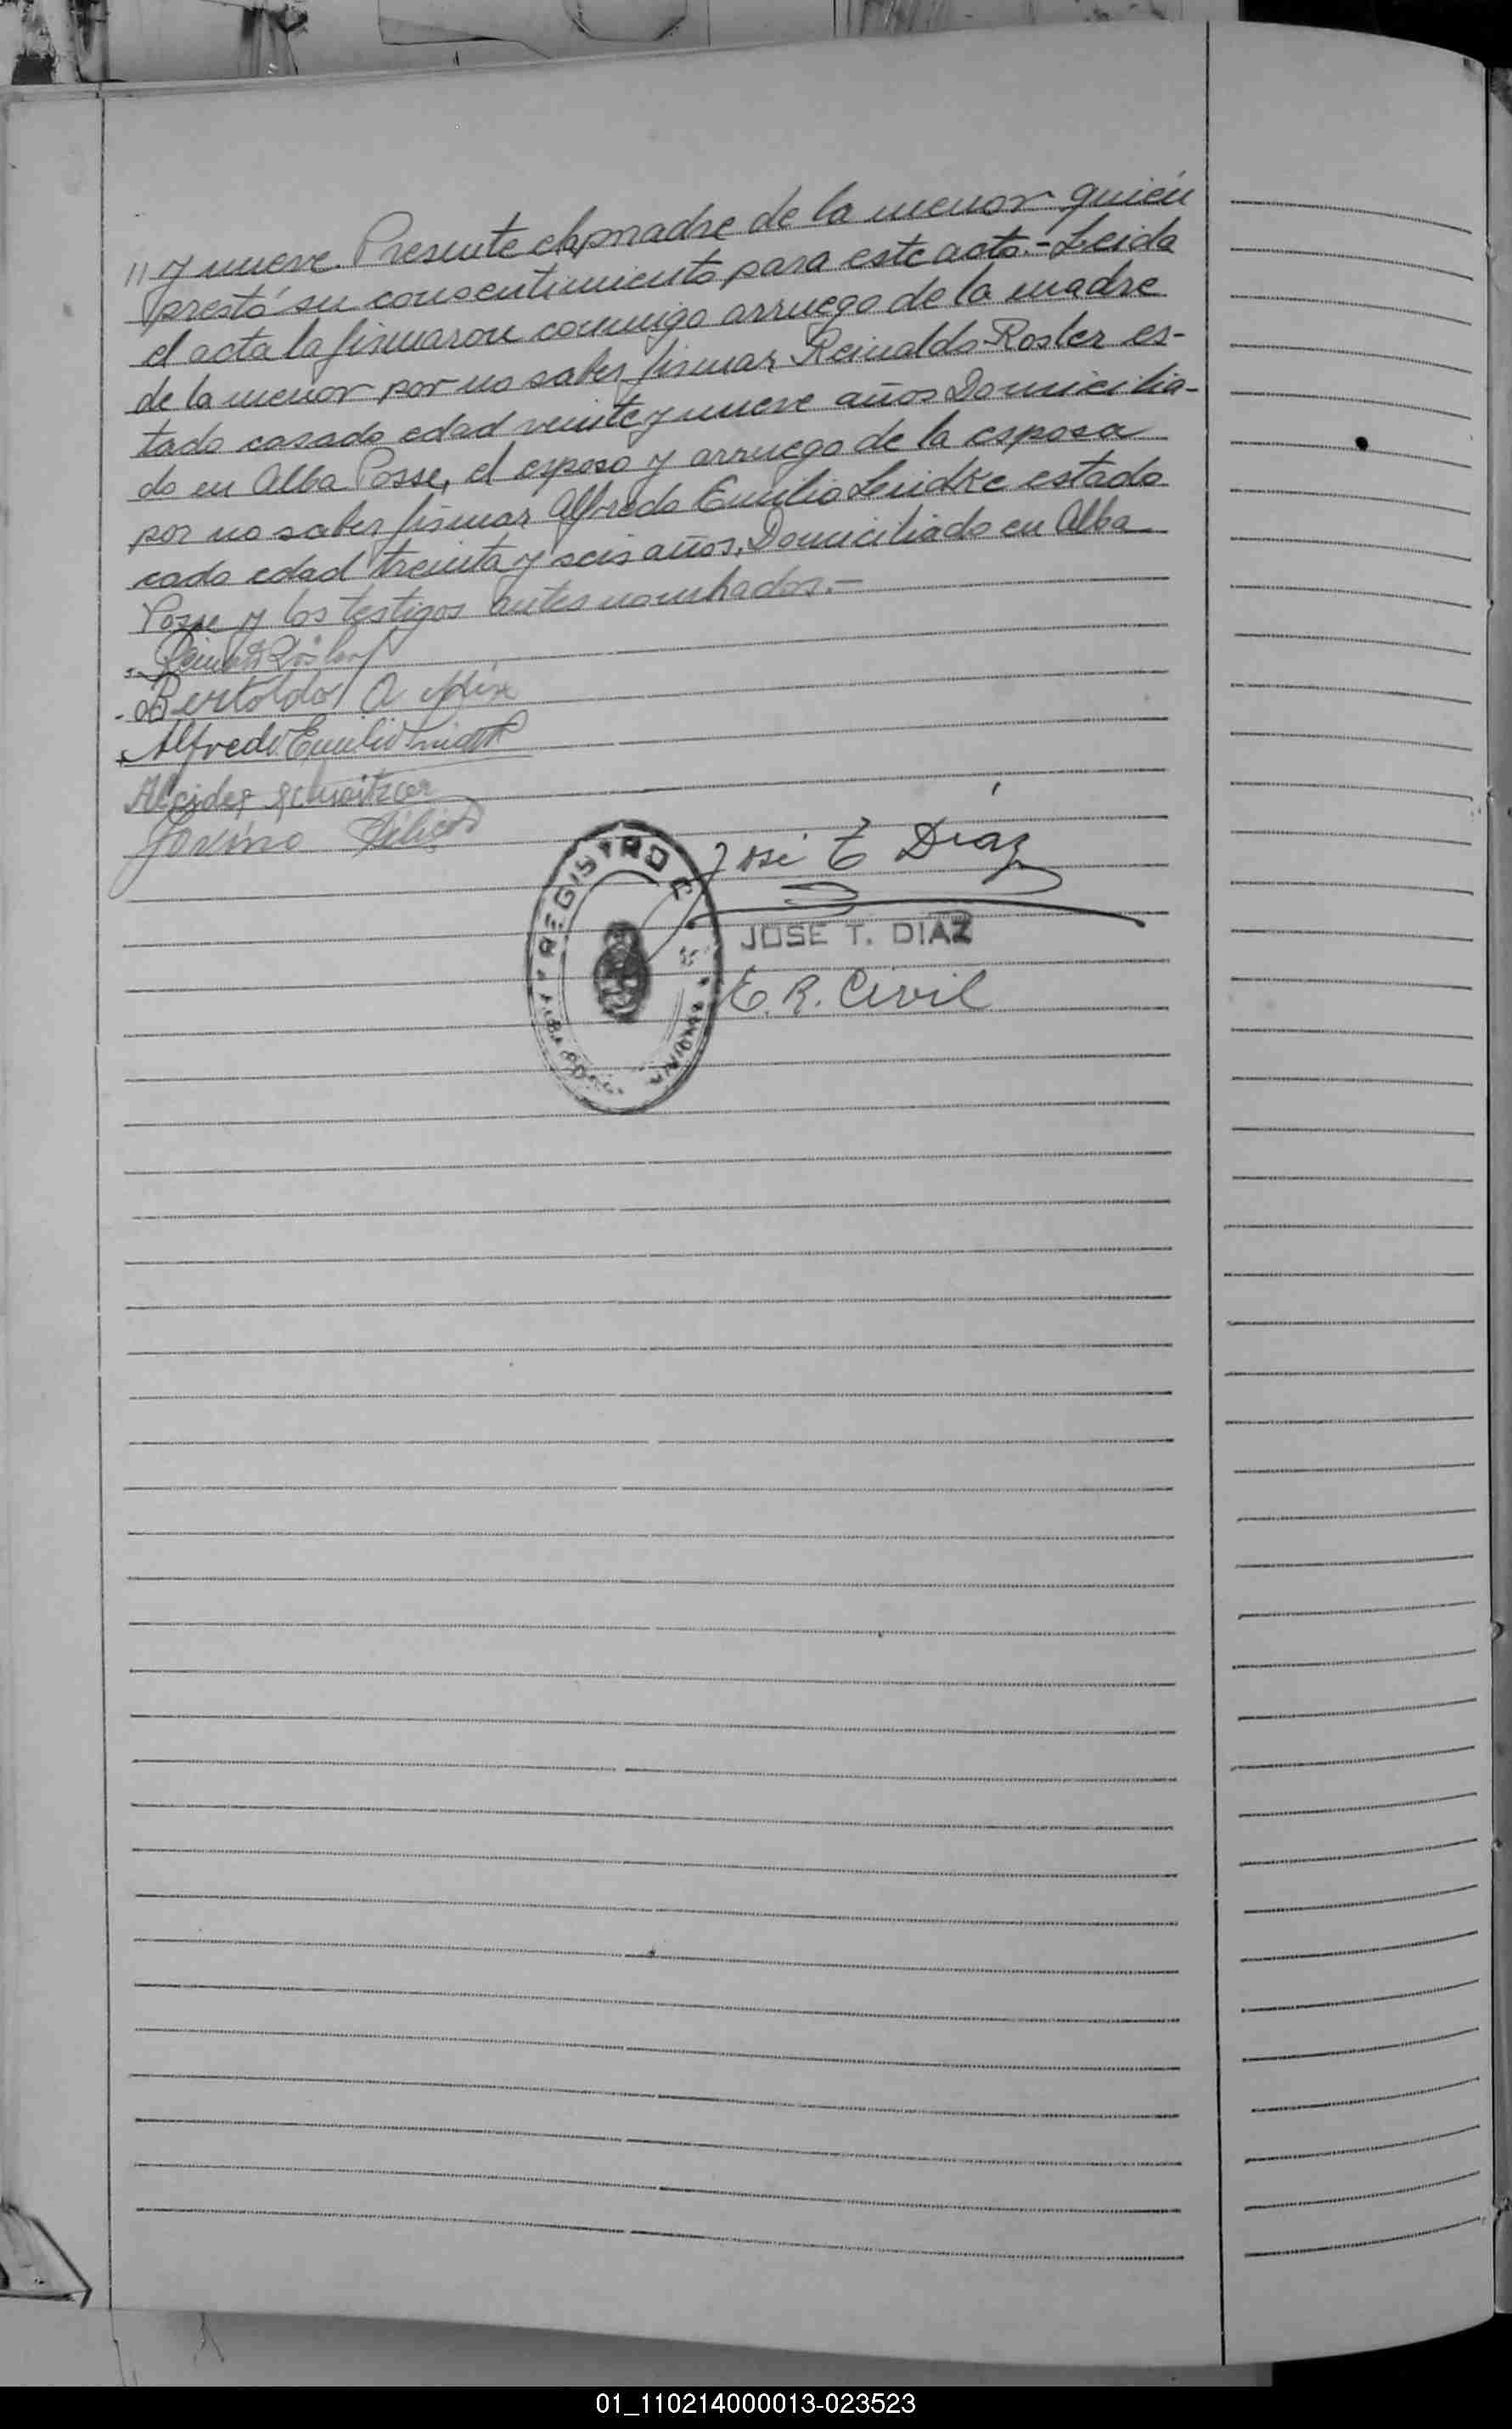 // y nueve. Presente la madre de la menor quién
prestó su consentimiento para este acto.- Leida
el acta la firmaron conmigo arruego de la madre
de la menor por no saber firmar Reinaldo Rosler es-
tado casado edad veinte y nueve años Domicilia-
do en Alba Posse, el esposo y arruego de la esposa
por no saber firmar Alfredo Emilio estado
cado edad treinta y seis años, Domiciliado en Alba
Posse y los testigos antes nombrados.-
Rösler
Bertoldo A
Alfredo Emilio
Alcides Schweitzer
José T Díaz
REGISTRO
JOSE T. DIAZ
E. R. Civil
ALBA POSSE
MISIONES
01_110214000013-023523